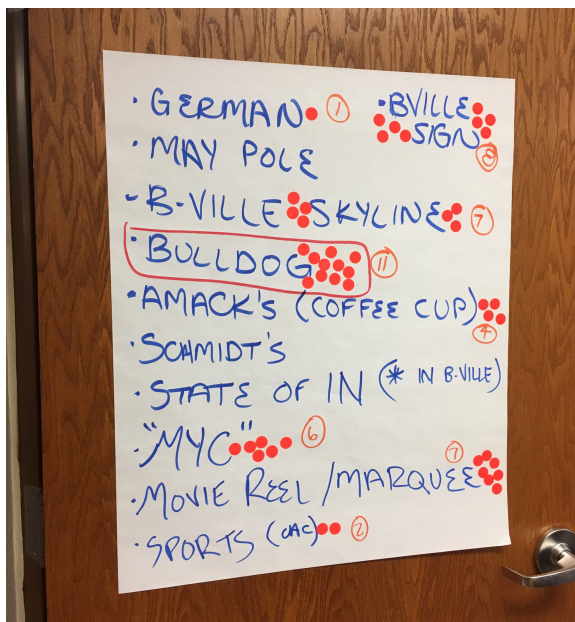 • GERMAN 1
• BVILLE
SIGN 8
• MAY POLE
- B-VILLE SKYLINE 7
• BULLDOG 11
• AMACK'S (COFFEE CUP) 4
• SCHMIDT'S
• STATE OF IN (* IN B-VILLE)
• "MYC" 6
• MOVIE REEL / MARQUEE 7
• SPORTS (OAC) 2